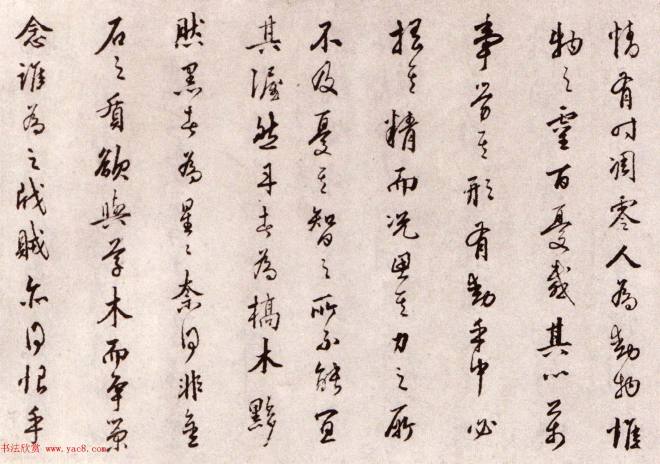 情有時凋零人為動物惟
物之靈百憂感其心萬
事勞其形有動乎中必
搖其精而況思其力之所
不及憂其智之所不能宜
其渥然丹者為槁木黟
然黑者為星々奈何非金
石之質欲與草木而爭榮
念誰為之戕賊亦何恨乎
书法欣赏 www.yac8.com